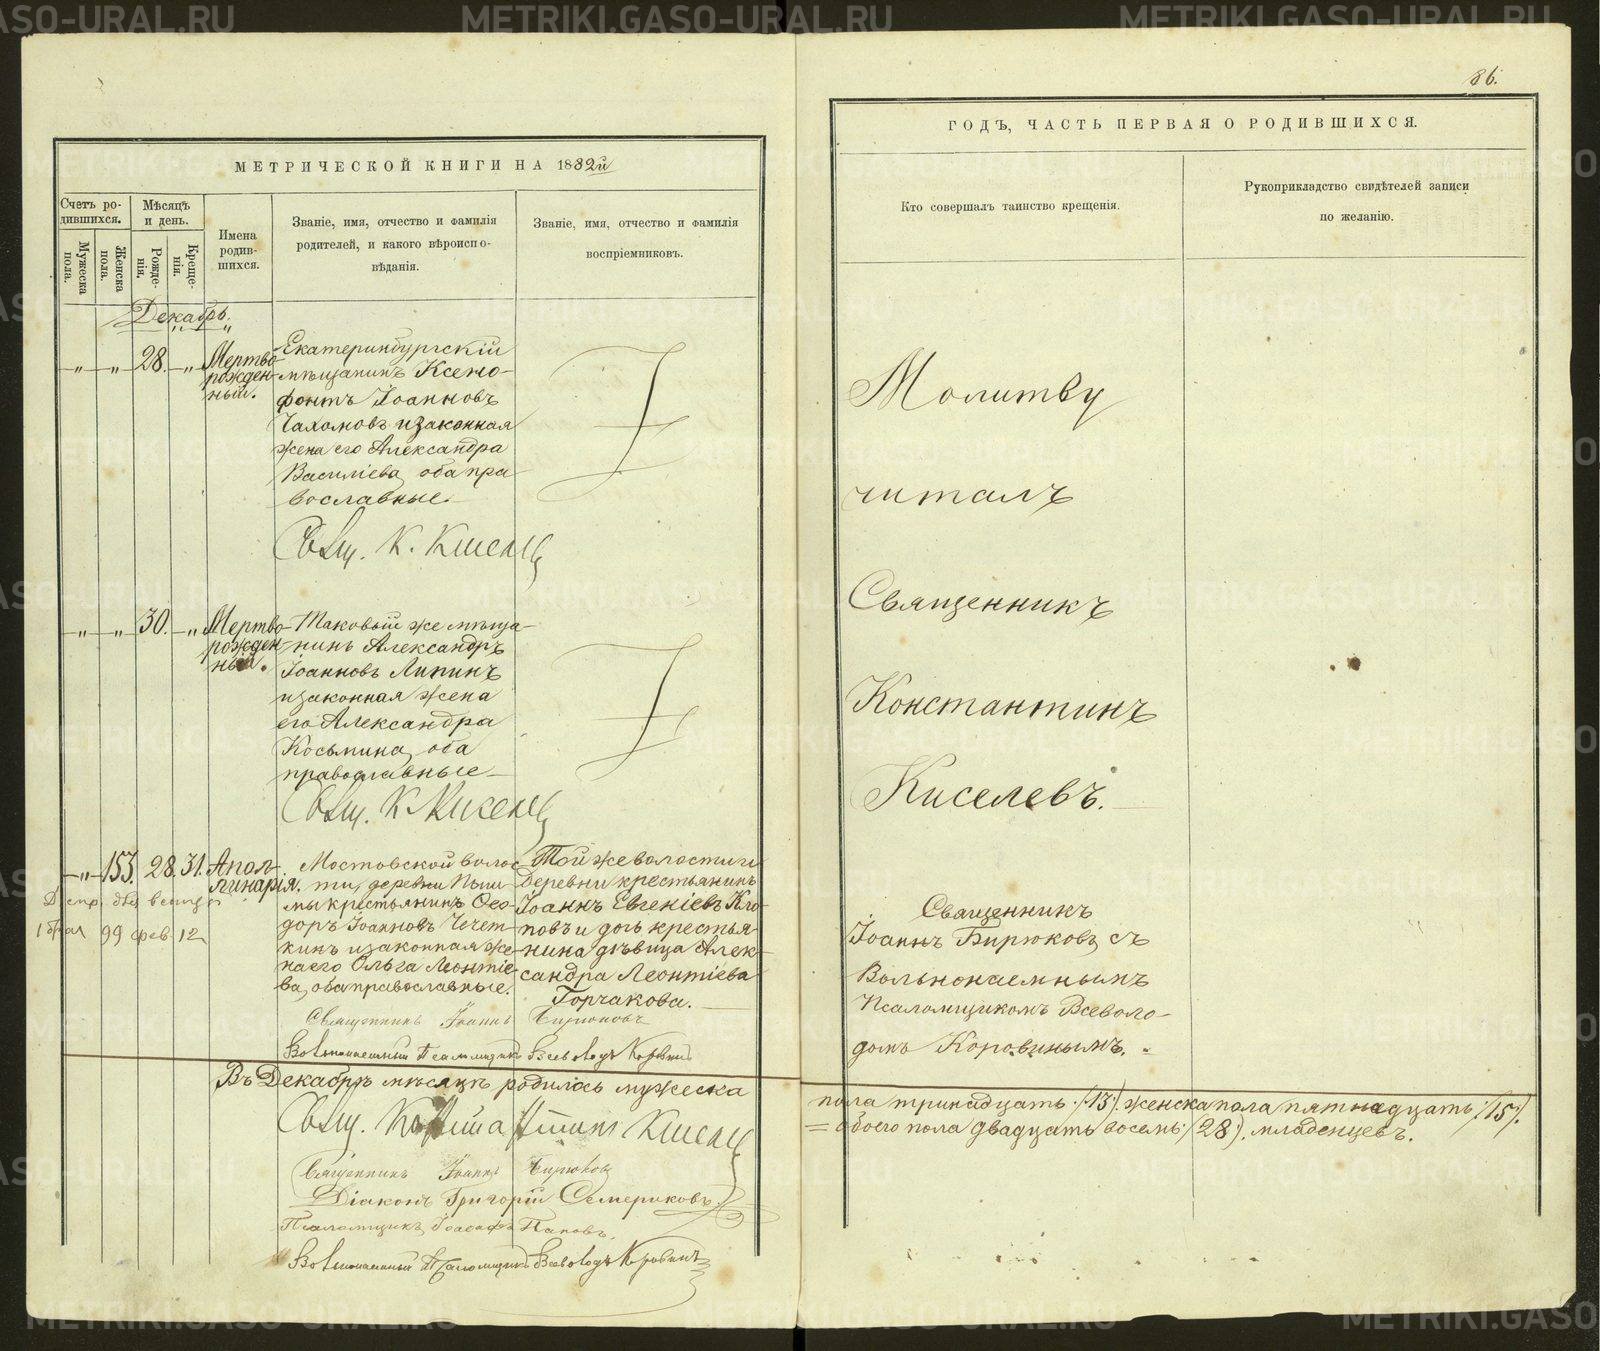 86.
МЕТРИЧЕСКОЙ КНИГИ НА 1882й
ГОДЪ, ЧАСТЬ ПЕРВАЯ О РОДИВШИХСЯ.
Счетъ ро-
дившихся.
Мужеска
пола.
Женска
пола.
Мѣсяцъ
и день.
Рожде-
нія.
Креще-
нія.
Имена
родив-
шихся.
Званіе, имя, отчество и фамилія
родителей, и какого вѣроиспо-
вѣданія.
Званіе, имя, отчество и фамилія
воспріемниковъ.
Кто совершалъ таинство крещенія.
Рукоприкладство свидѣтелей записи
по желанію.
Декабрь.
28.
Мертво-
рожден-
ный.
Екатеринбургскій
мѣщанинъ Ксено-
фонтъ Іоанновъ
Чахомовъ и законная
жена его Александра
Василіева, оба пра
вославные.
Свящ. К. Киселев
Молитву
читалъ
Священникъ
Константинъ
Киселевъ.
30.
Мертво
рожден
ный.
Таковый же мѣща-
нинъ Александръ
Іоанновъ Липинъ
и законная жена
его Александра
Косьмина, оба
православные
Свящ. К. Киселев
153. 28. 31.
Апол-
линарія.
Мостовской волос-
ти, деревни Пыш
мы крестьянинъ Ѳео-
доръ Іоанновъ Чечет-
кинъ и законная же-
на его Ольга Леонтіе-
ва, оба православные.
Той же волости и
деревни крестьянинъ
Іоаннъ Евгеніевъ Кло-
повъ и дочь крестья-
нина дѣвица Алек-
сандра Леонтіева
Горчакова.
99 фев 12
Священникъ Іоаннъ Бирюковъ
Вольнонаемный Псаломщикъ Всеволодъ Коровинъ
Священникъ
Іоаннъ Бирюковъ, съ
Вольнонаемнымъ
Псаломщикомъ Всеволо-
домъ Коровинымъ.
Въ Декабрѣ мѣсяцѣ родилось мужеска
пола тринадцать /13/, женска пола пятнадцать /15/.
= обоего пола двадцать восемь /28/, младенцевъ.
Свящ. Константинъ Киселев
Священникъ Іоаннъ Бирюковъ
Діаконъ Григорій Семериковъ.
Псаломщикъ Іоасафъ Паповъ.
Вольнонаемный Псаломщикъ Всеволодъ Коровинъ
METRIKI.GASO-URAL.RU